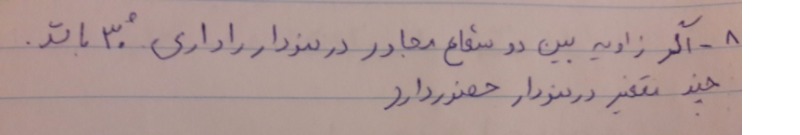 ۸- اگر زاویه بین دو شعاع مجاور در نمودار راداری ۳۰° باشد.
چند متغیر در نمودار حضور دارد